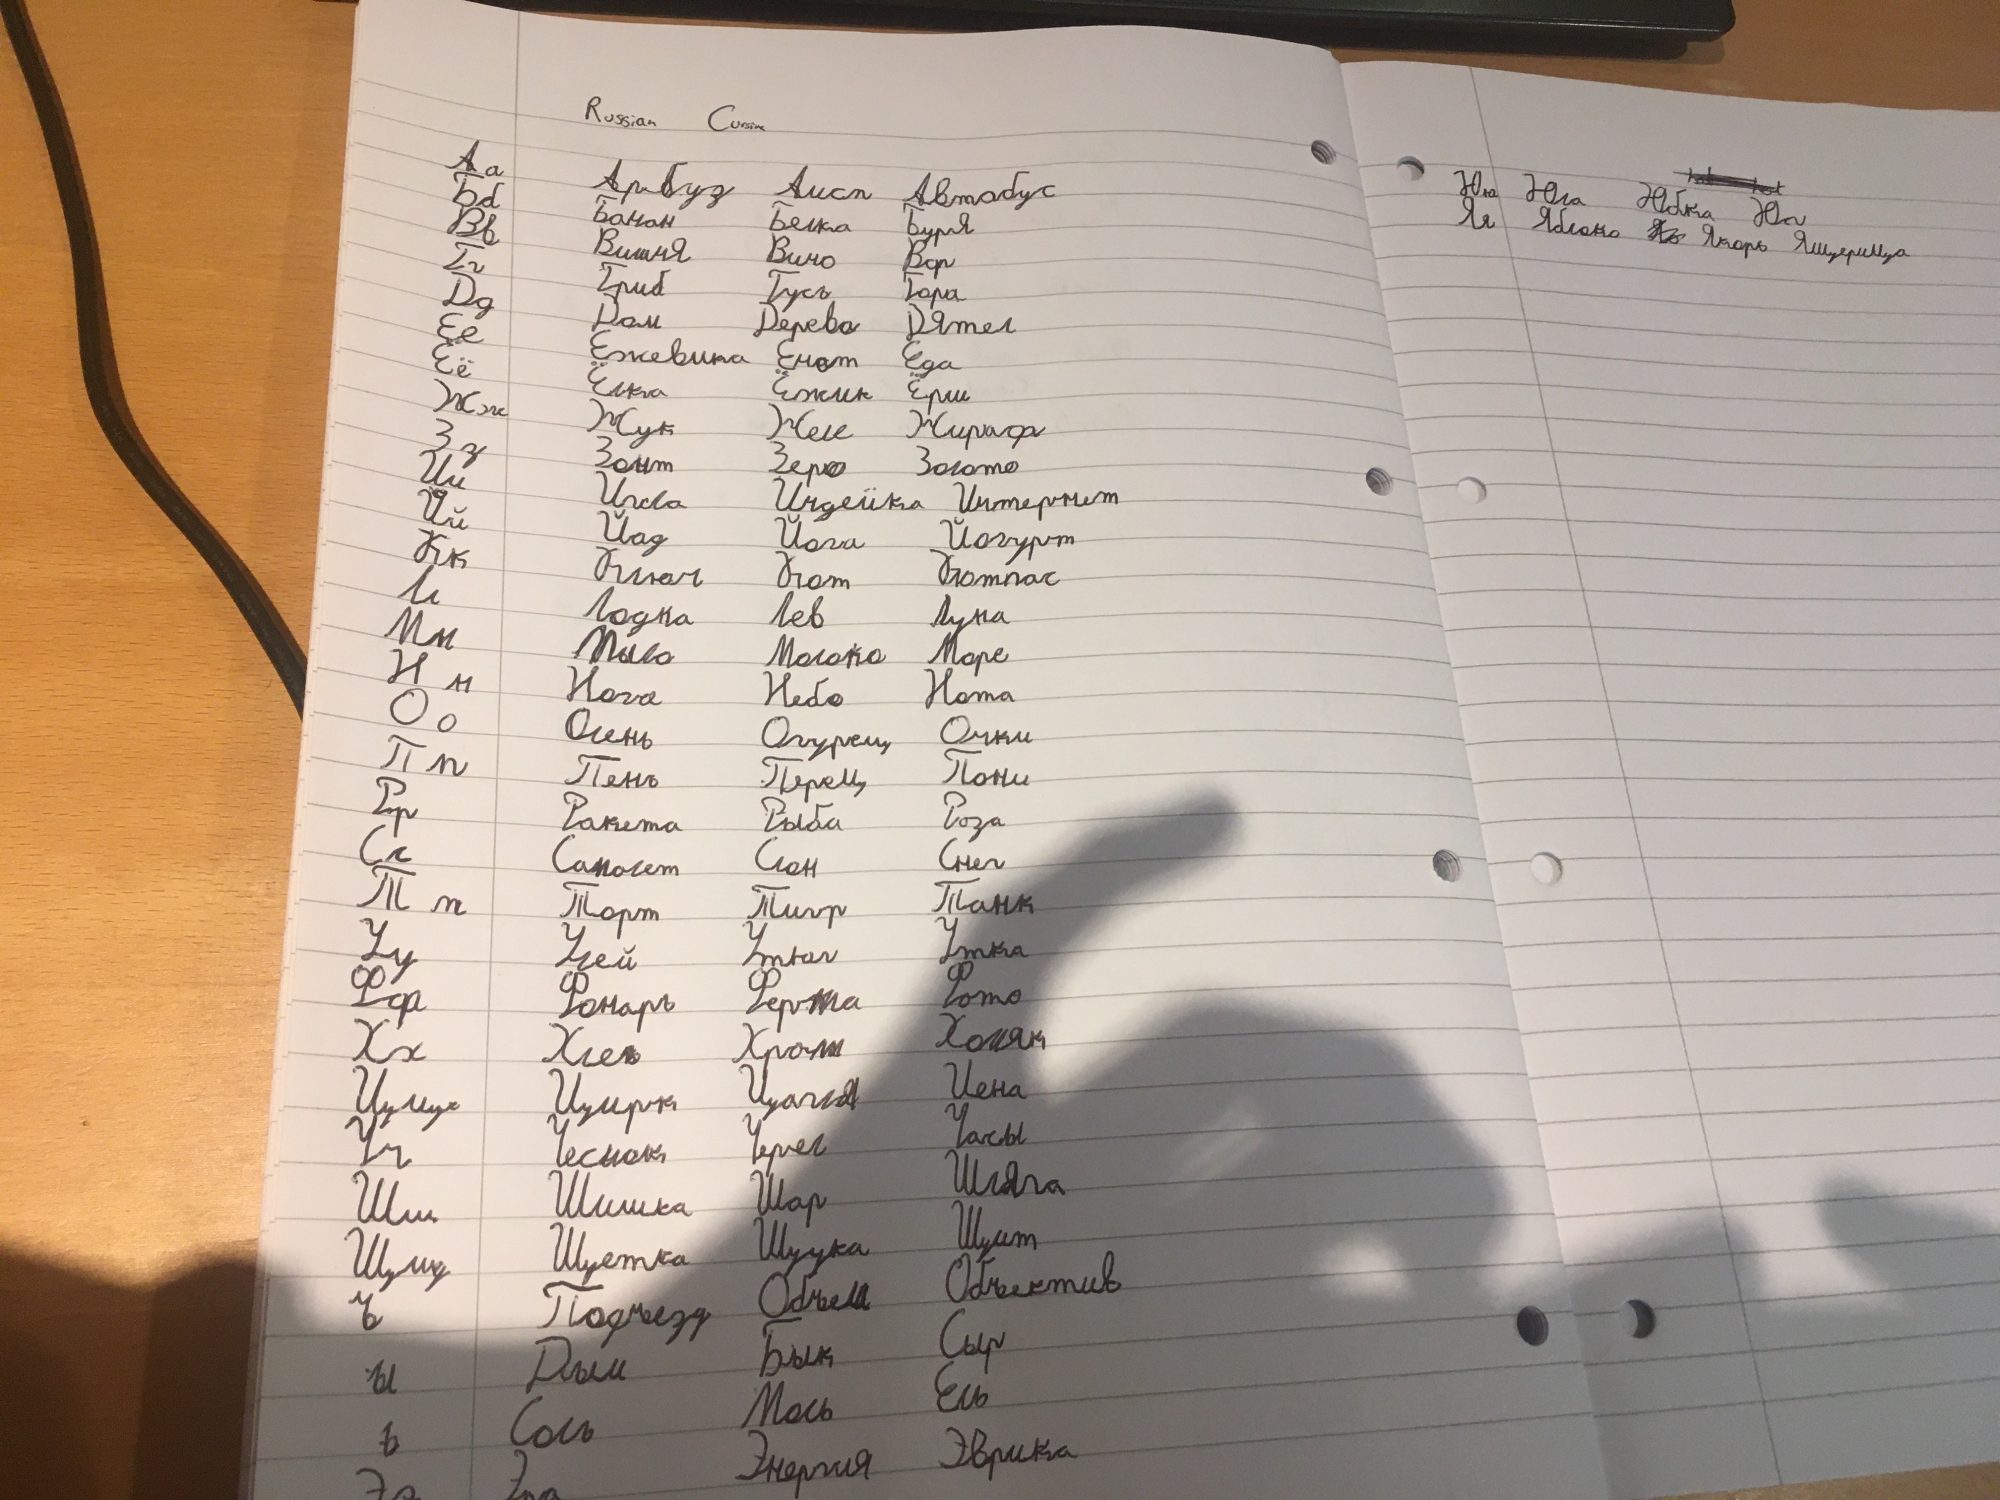 Russian Cursive
Аа Арбуз Аист Автобус
Бб Банан Белка Буря
Вв Вишня Вино Вор
Гг Гриб Гусь Гора
Дд Дом Дерево Дятел
Ее Ежевика Енот Еда
Ёё Ёлка Ёжик Ёрш
Жж Жук Желе Жираф
Зз Зонт Зерно Золото
Ии Игла Индейка Интернет
Йй Йод Йога Йогурт
Кк Ключ Кот Компас
Лл Лодка Лев Луна
Мм Мыло Молоко Море
Нн Нога Небо Нота
Оо Осень Огурец Очки
Пп Пень Перец Пони
Рр Ракета Рыба Роза
Сс Самолет Слон Снег
Тт Торт Тигр Танк
Уу Улей Утюг Утка
Фф Фонарь Ферма Фото
Хх Хлеб Храм Хомяк
Цц Цирк Цапля Цена
Чч Чеснок Череп Часы
Шш Шишка Шар Шляпа
Щщ Щетка Щука Щит
ъ Подъезд Объем Объектив
ы Дым Бык Сыр
ь Соль Моль Ель
Ээ Энергия Эврика
Юю Юла Юбка Юг
Яя Яблоко Якорь Ящерица